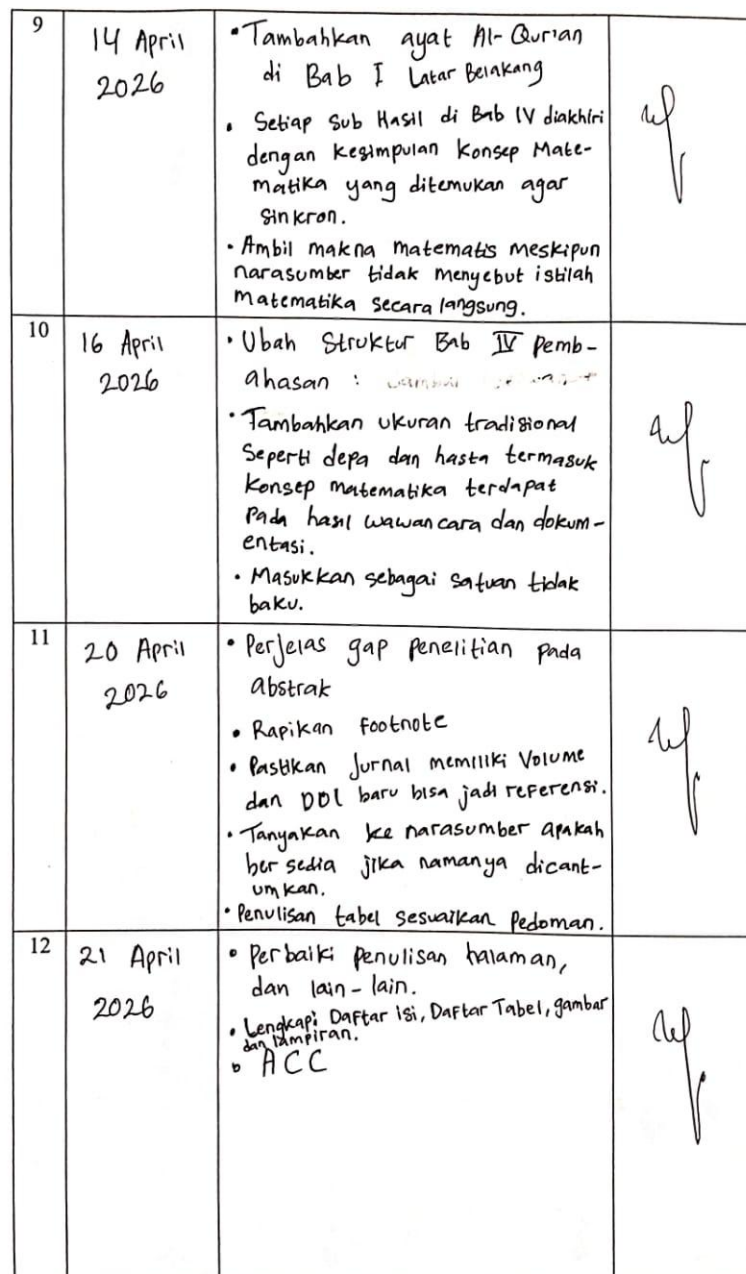 9
14 April
2026
• Tambahkan ayat Al-Qur'an
di Bab I Latar Belakang
• Setiap Sub Hasil di Bab IV diakhiri
dengan kesimpulan konsep Mate-
matika yang ditemukan agar
sinkron.
• Ambil makna matematis meskipun
narasumber tidak menyebut istilah
matematika secara langsung.
10
16 April
2026
• Ubah Struktur Bab IV Pemb-
ahasan :
• Tambahkan ukuran tradisional
Seperti depa dan hasta termasuk
konsep matematika terdapat
pada hasil wawancara dan dokum-
entasi.
• Masukkan sebagai satuan tidak
baku.
11
20 April
2026
• Perjelas gap penelitian pada
abstrak
• Rapikan footnote
• Pastikan Jurnal memiliki Volume
dan DOI baru bisa jadi referensi.
• Tanyakan ke narasumber apakah
bersedia jika namanya dicant-
umkan.
• Penulisan tabel sesuaikan Pedoman.
12
21 April
2026
• Perbaiki penulisan halaman,
dan lain-lain.
• Lengkapi Daftar isi, Daftar Tabel, gambar
dan lampiran.
• ACC